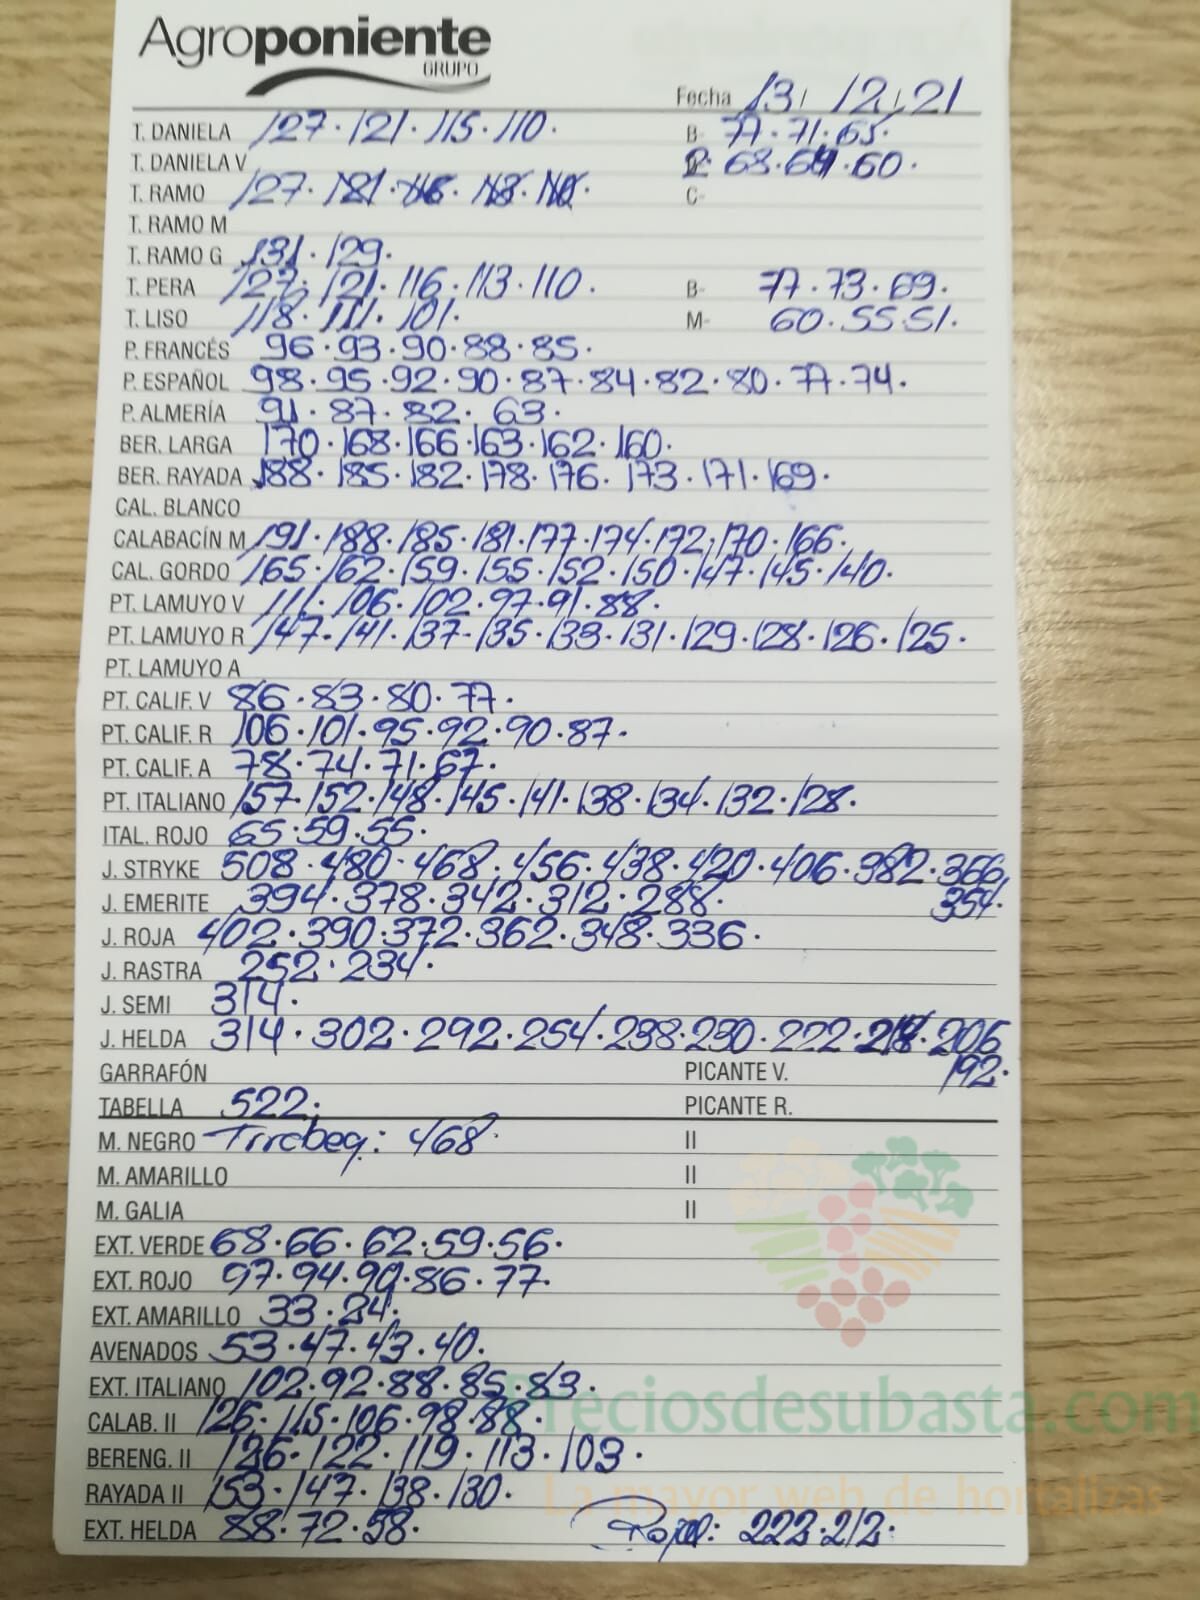 Agroponiente
GRUPO
Fecha 13/ 12/ 21
T. DANIELA 127. 121. 115. 110. B- 77. 71. 65.
T. DANIELA V 68. 64. 60.
T. RAMO 127. 121. 116. 113. 110. C-
T. RAMO M
T. RAMO G 131. 129.
T. PERA 127. 121. 116. 113. 110. B- 77. 73. 69.
T. LISO 118. 111. 101. M- 60. 55. 51.
P. FRANCÉS 96. 93. 90. 88. 85.
P. ESPAÑOL 98. 95. 92. 90. 87. 84. 82. 80. 77. 74.
P. ALMERÍA 91. 87. 82. 63.
BER. LARGA 170. 168. 166. 163. 162. 160.
BER. RAYADA 188. 185. 182. 178. 176. 173. 171. 169.
CAL. BLANCO
CALABACÍN M 191. 188. 185. 181. 177. 174. 172. 170. 166.
CAL. GORDO 165. 162. 159. 155. 152. 150. 147. 145. 140.
PT. LAMUYO V 111. 106. 102. 97. 91. 88.
PT. LAMUYO R 147. 141. 137. 135. 133. 131. 129. 128. 126. 125.
PT. LAMUYO A
PT. CALIF. V 86. 83. 80. 77.
PT. CALIF. R 106. 101. 95. 92. 90. 87.
PT. CALIF. A 78. 74. 71. 67.
PT. ITALIANO 157. 152. 148. 145. 141. 138. 134. 132. 128.
ITAL. ROJO 65. 59. 55.
J. STRYKE 508. 480. 468. 456. 438. 420. 406. 382. 366.
354.
J. EMERITE 394. 378. 342. 312. 288.
J. ROJA 402. 390. 372. 362. 348. 336.
J. RASTRA 252. 234.
J. SEMI 314.
J. HELDA 314. 302. 292. 254. 238. 230. 222. 218. 206
192.
GARRAFÓN PICANTE V.
TABELLA 522. PICANTE R.
M. NEGRO Tirabeq.: 468. II
M. AMARILLO II
M. GALIA II
EXT. VERDE 68. 66. 62. 59. 56.
EXT. ROJO 97. 94. 90. 86. 77.
EXT. AMARILLO 33. 24.
AVENADOS 53. 47. 43. 40.
EXT. ITALIANO 102. 92. 88. 85. 83.
Preciosdesubasta.com
CALAB. II 126. 115. 106. 98. 88.
BERENG. II 126. 122. 119. 113. 103.
RAYADA II 153. 147. 138. 130.
La mayor web de hortalizas
EXT. HELDA 88. 72. 58. 222. 212.